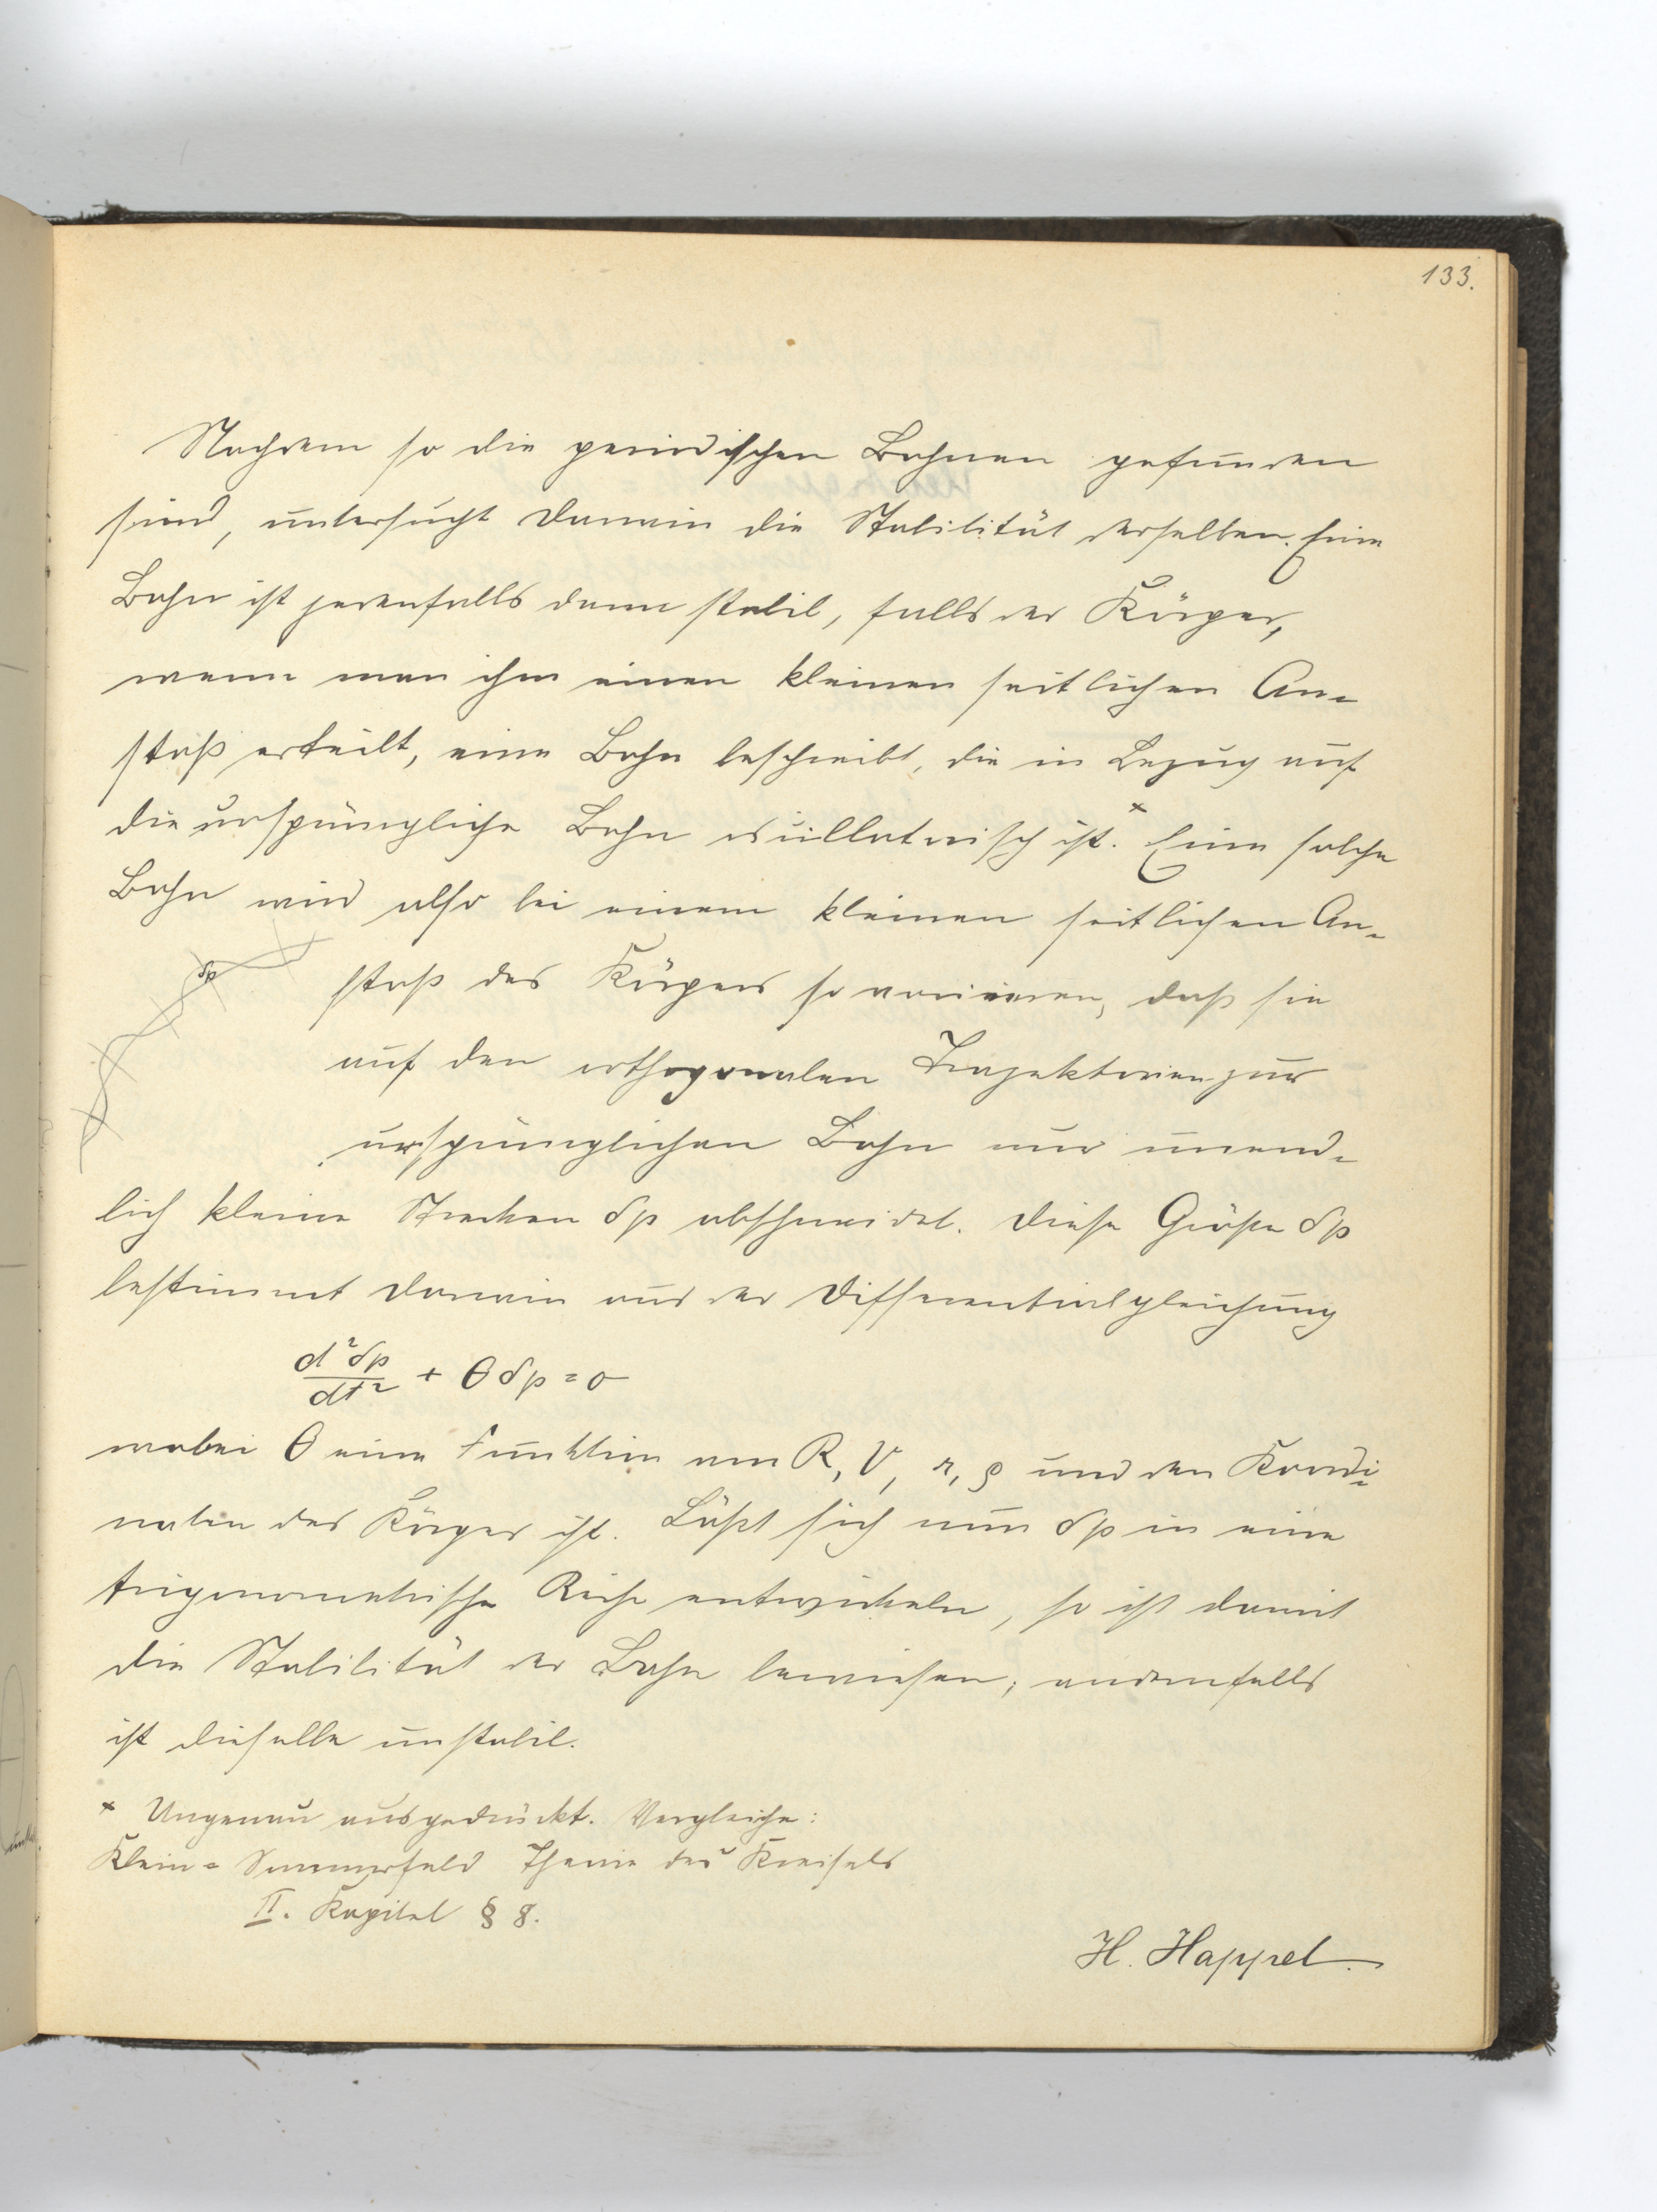 133.
Nachdem so die periodischen Bahnen gefunden
sind, untersucht Darwin die Stabilität derselben. Eine
Bahn ist jedenfalls dann stabil, falls der Körper,
wenn man ihm einen kleinen seitlichen An-
stoß erteilt, eine Bahn beschreibt, die in Bezug auf
die ursprüngliche Bahn oscillatorisch ist.× Eine solche
Bahn wird also bei einem kleinen seitlichen An-
δp
stoß des Körpers so variieren, daß sie
auf den orthogonalen Trajektorien zur
ursprünglichen Bahn nur unend-
lich kleine Strecken δp abschneidet. Diese Größe δp
bestimmt Darwin aus der Differentialgleichung
d²δp/dt² + θ δp = 0
wobei θ eine Funktion von R, V, r, ρ und den Koordi-
naten des Körper ist. Läßt sich nun δp in eine
trigonometrische Reihe entwickeln, so ist damit
die Stabilität der Bahn bewiesen; andernfalls
ist dieselbe unstabil.
× Ungenau ausgedrückt. Vergleiche:
Klein-Sommerfeld Theorie des Kreisels
II. Kapitel § 8.
H. Happel.